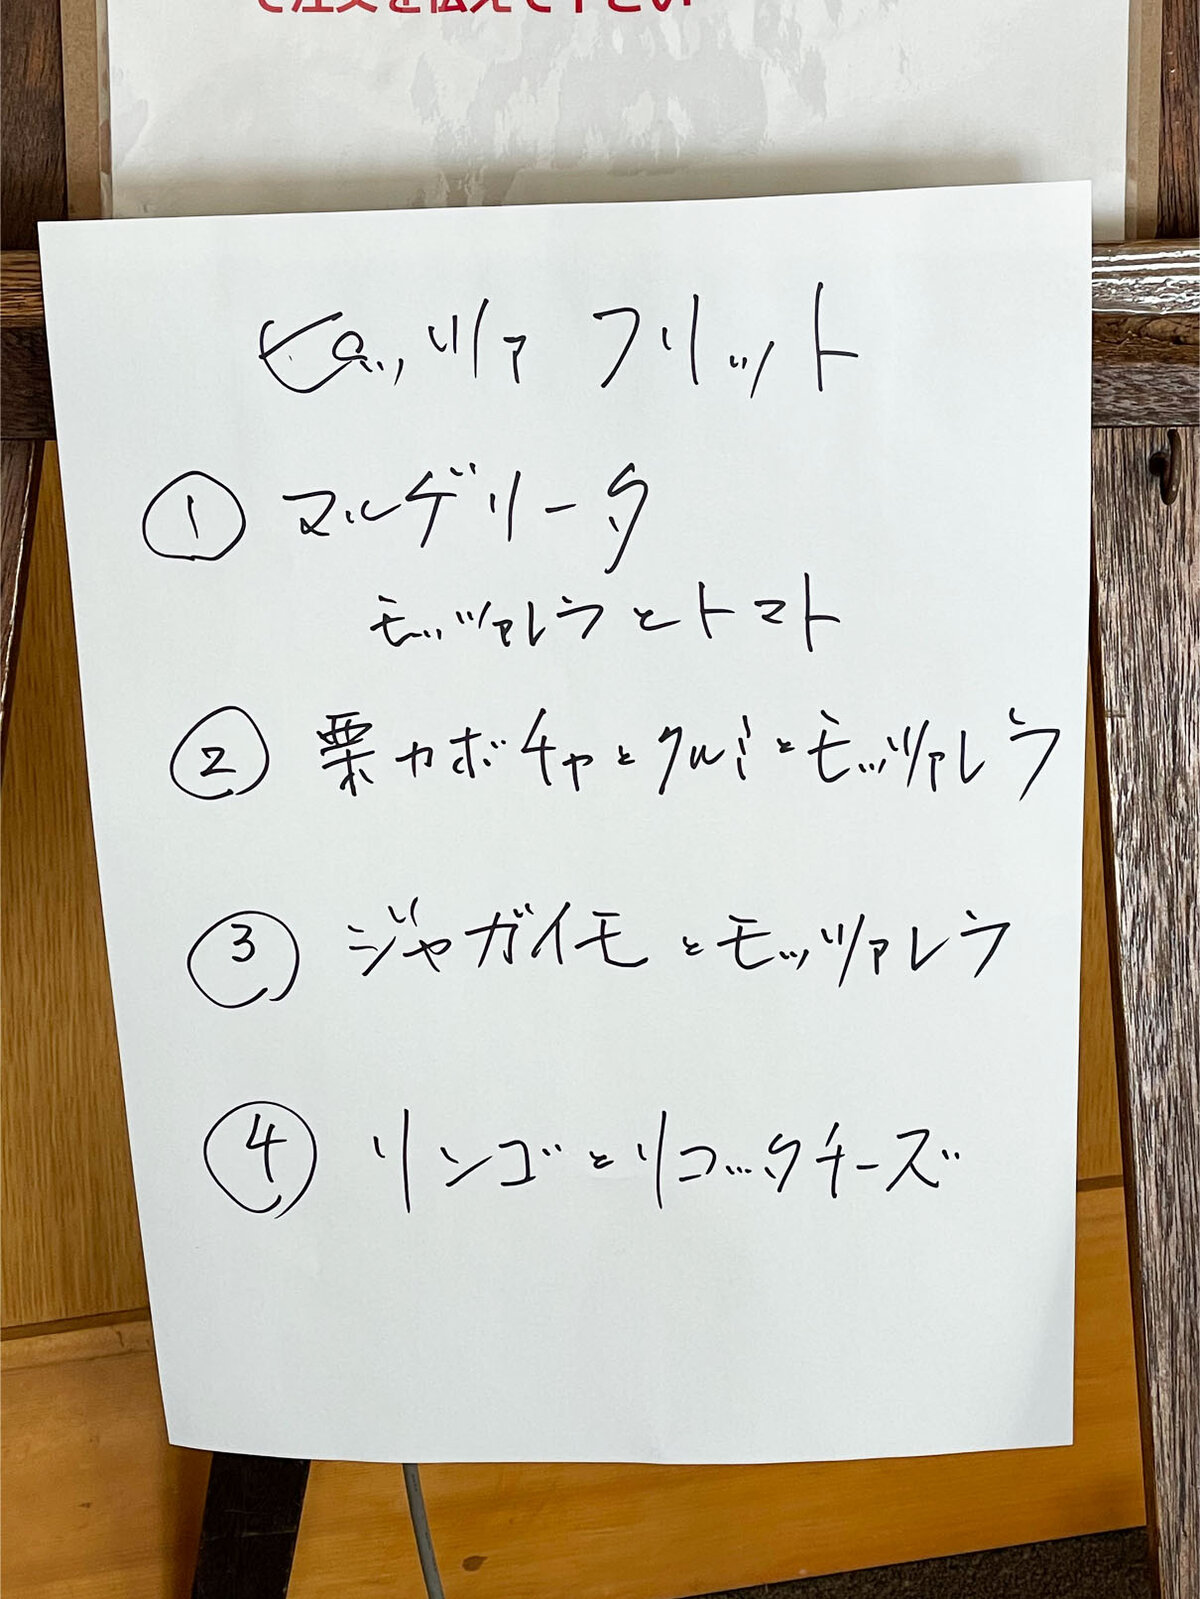 て注文を伝えて下さい
ピッツァ フリット
① マルゲリータ
モッツァレラとトマト
② 栗カボチャとクルミとモッツァレラ
③ ジャガイモとモッツァレラ
④ リンゴとリコッタチーズ